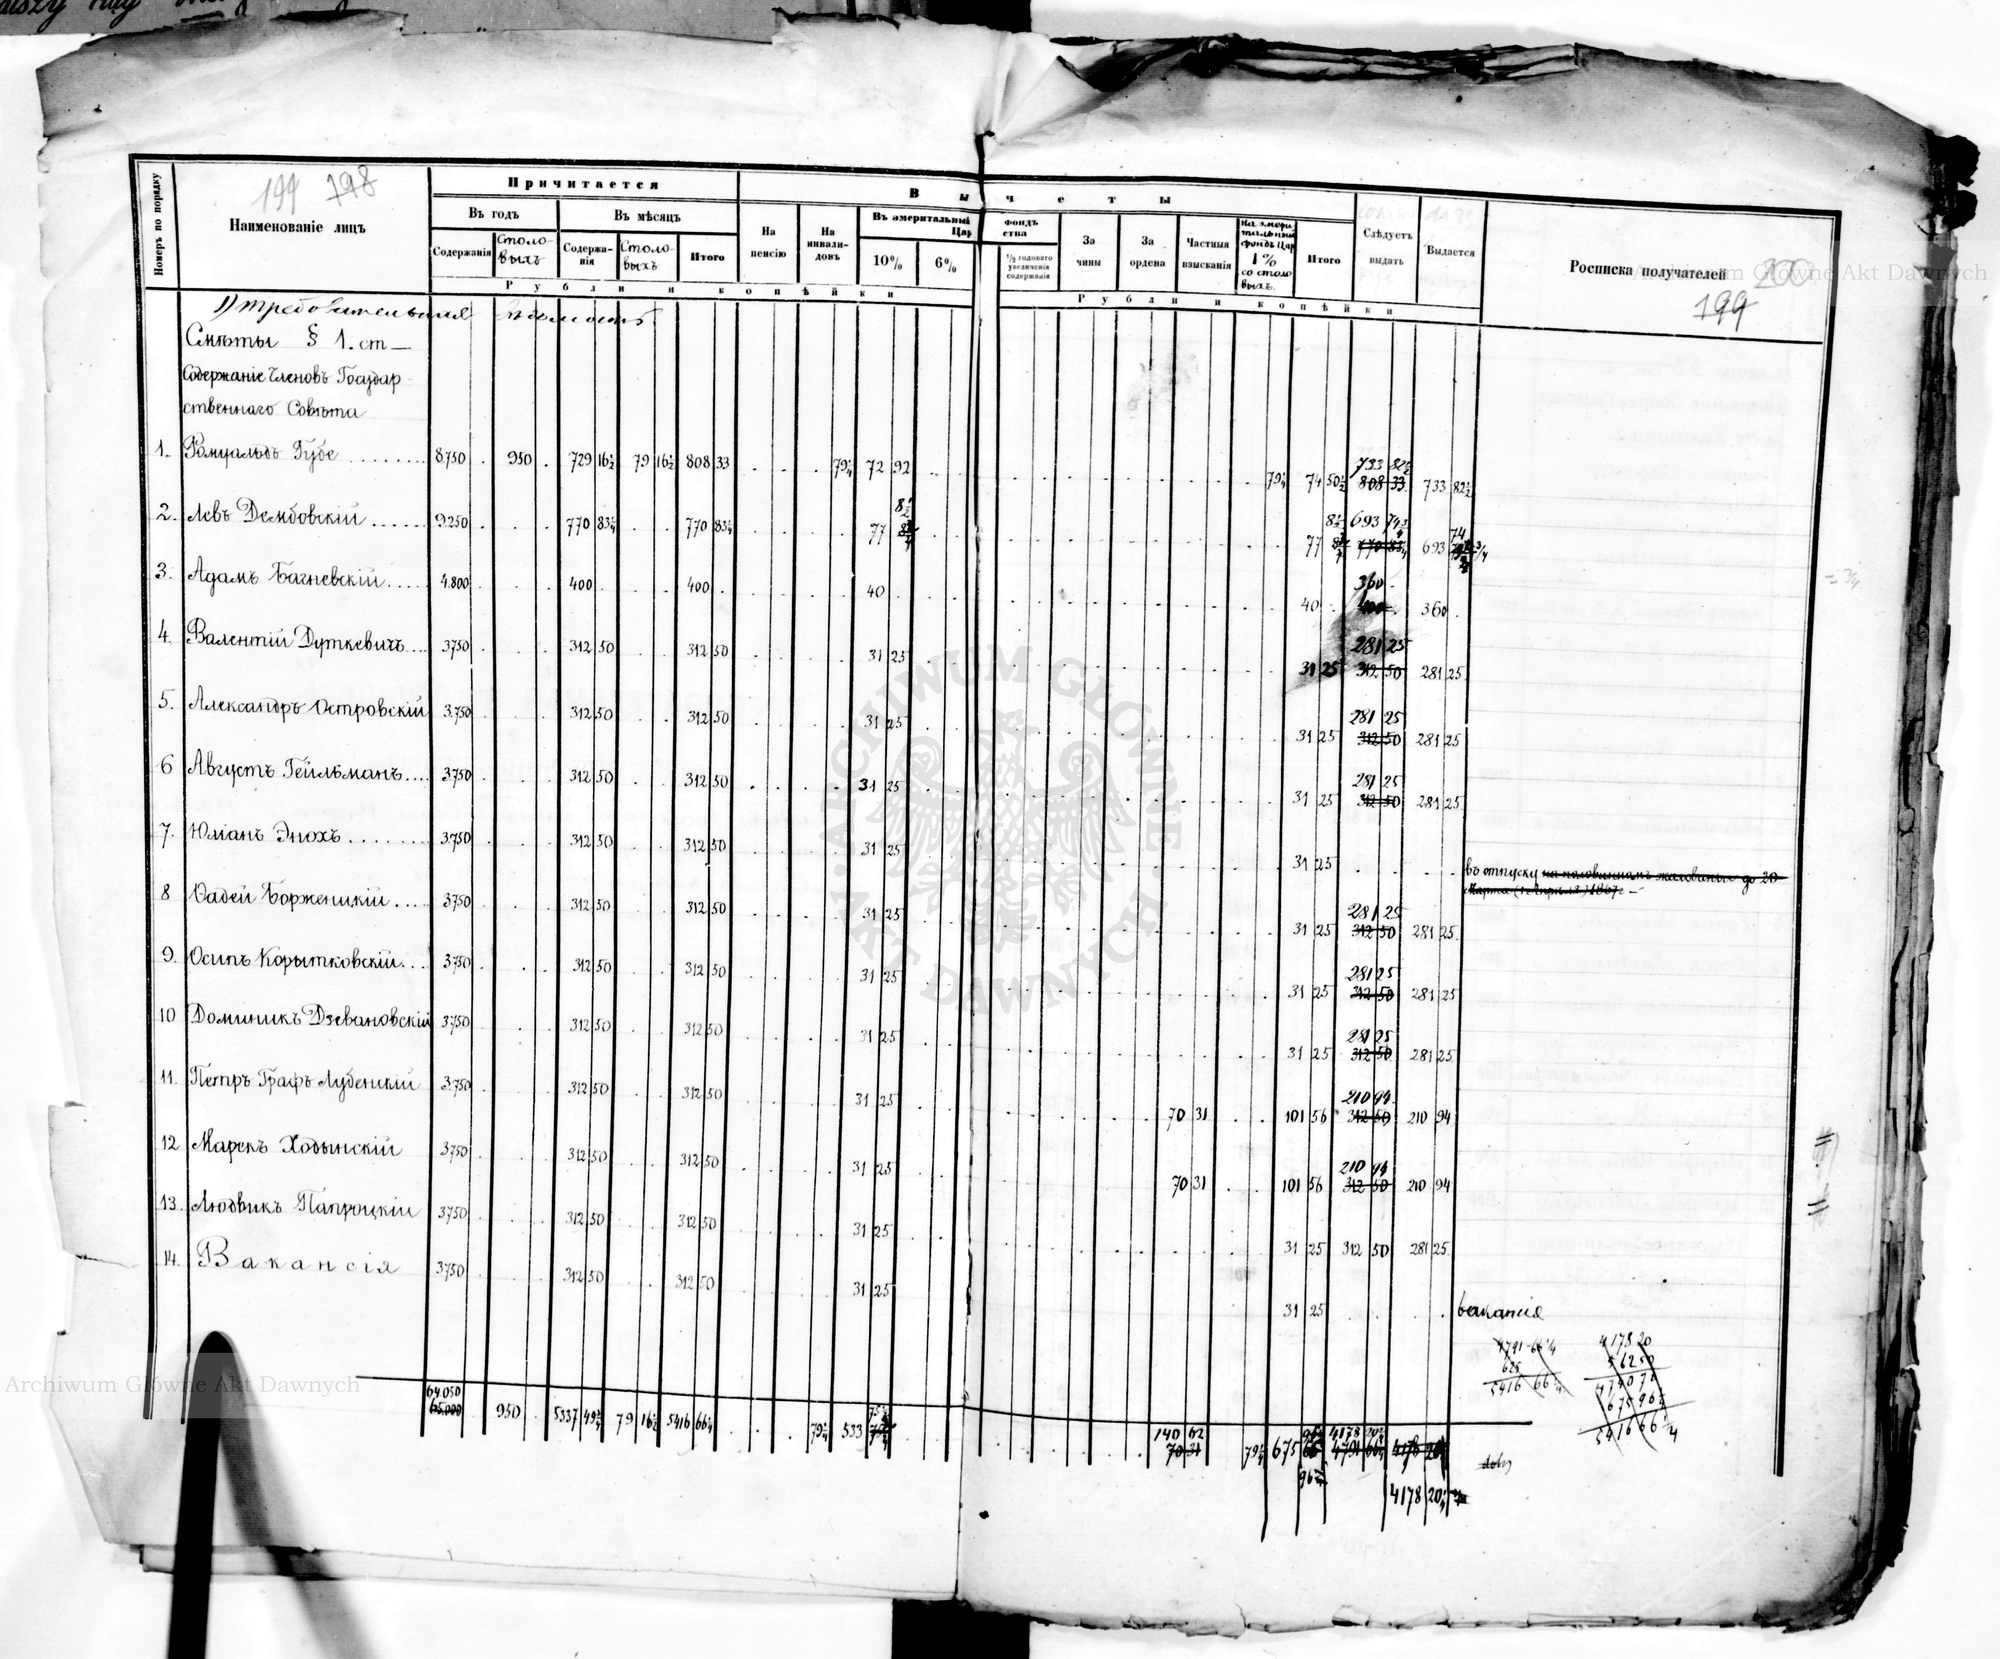 199 798
Номеръ по порядку
Наименованіе лицъ
Причитается
Въ годъ
Въ мѣсяцъ
Содержанія
Столовыхъ
Содержа-
нія
Столо-
выхъ
Итого
Вычеты
На
пенсію
На
инвали-
довъ
Въ эмеритальный фондъ
Царства
10%
6%
1/2 годоваго
увеличенія
содержанія
За
чины
За
ордена
Частныя
взысканія
На эмери-
тальный
фондъ Цар
1%
со столо
выхъ.
Итого
Слѣдуетъ
выдать
Выдается
Росписка получателей
200
199
Рубли и копѣйки
Рубли и копѣйки
1) Требовательная Вѣдомость
Смѣты § 1. ст —
Содержаніе Членовъ Государ-
ственнаго Совѣта
1. Ромуальдъ Губе 8750 950 729 16½ 79 16½ 808 33 79¼ 72 92 79¼ 74 50½ 733 82½ 808 33 733 82½
2. Левъ Дембовскій 9250 770 83¼ 770 83¼ 77 8½ 77 8½ 693 74¾ 770 83¼ 693 74 ¾
3. Адамъ Багневскій 4.800 400 400 40 40 360 400 360
4. Валентій Дуткевичъ 3750 312 50 312 50 31 25 31 25 281 25 312 50 281 25
5. Александръ Островскій 3.750 312 50 312 50 31 25 31 25 281 25 312 50 281 25
6 Августъ Гейльманъ 3750 312 50 312 50 31 25 31 25 281 25 312 50 281 25
7. Юліанъ Энохъ 3750 312 50 312 50 31 25 31 25 въ отпуску на половинномъ жалованьи до 20
Марта (1 Апрѣля) 1867 г —
8 Фадей Борженцкій 3750 312 50 312 50 31 25 31 25 281 25 312 50 281 25
9. Осипъ Корытковскій 3750 312 50 312 50 31 25 31 25 281 25 312 50 281 25
10 Доминикъ Дзевановскій 3750 312 50 312 50 31 25 31 25 281 25 312 50 281 25
11. Петръ Графъ Лубенскій 3.750 312 50 312 50 31 25 70 31 101 56 210 94 312 50 210 94
12 Марекъ Ходынскій 3750 312 50 312 50 31 25 70 31 101 56 210 94 312 50 210 94
13. Людвикъ Папроцкій 3750 312 50 312 50 31 25 31 25 312 50 281 25
14. Вакансія 3750 312 50 312 50 31 25 31 25 вакансія
4791-66¼
625
5416 66¼
4178 20
562 50
4740 7
675 96½
5416 66¼
64.050
65.000 950 5337 49¾ 79 16½ 5416 66¼ 79¼ 533 75¼
140 62
70 31 79¼ 675 96¼ 4178 20¼
4791 66¼ 4178 20
96¼
4178 20¼
ARCHIWUM GŁÓWNE AKT DAWNYCH
Archiwum Główne Akt Dawnych
Archiwum Główne Akt Dawnych